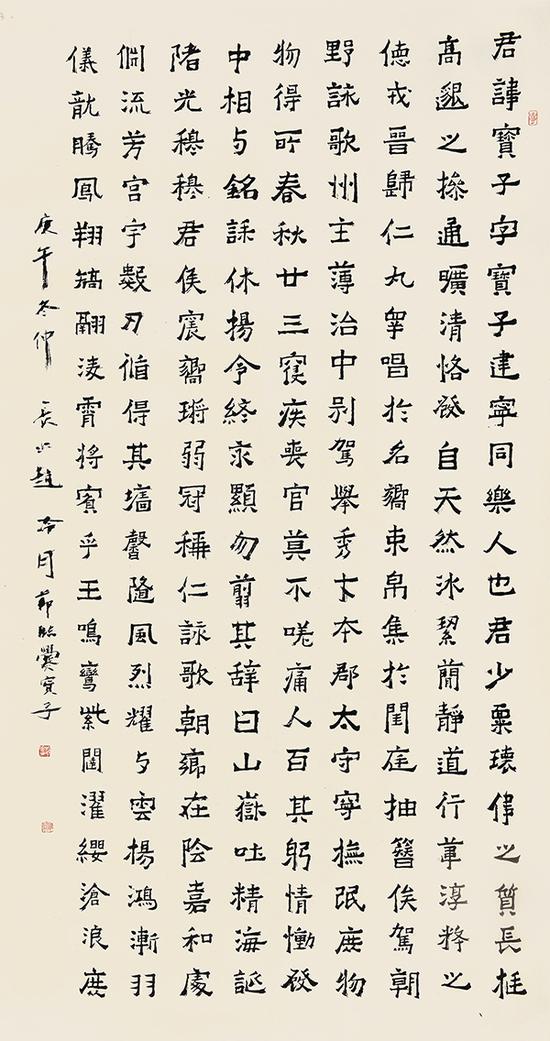 君諱寶子字寶子建寧同樂人也君少稟瓌偉之質長挺
高邈之操通曠清恪發自天然冰絜蕳靜道行葦淳粹之
德戎晉歸仁九皋唱於名嚮束帛集於閨庭抽簪俟駕朝
野詠歌州主薄治中别駕舉秀才本郡太守寧撫氓庶物
物得所春秋廿三寢疾喪官莫不嗟痛人百其躬情慟發
中相与銘誄休揚令終永顯勿翦其辭曰山嶽吐精海誕
陼光穆穆君侯震嚮鏘弱冠稱仁詠歌朝鄉在陰嘉和處
淵流芳宮宇數刃循得其墻馨隨風烈耀与雲揚鴻漸羽
儀龍騰鳳翔矯翮淩霄將賓乎王鳴鸞紫闥濯纓滄浪庶
庚午冬仲 長趙冷月節臨爨寶子